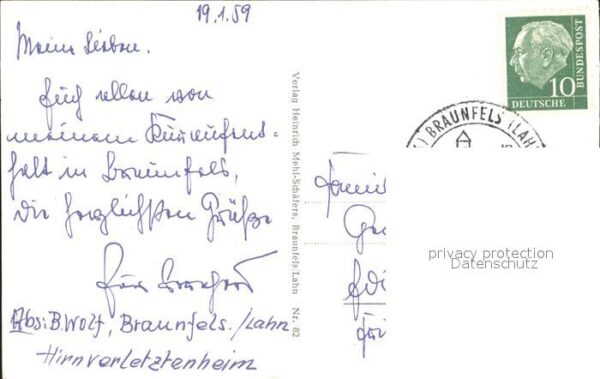 19.1.59
Meine Lieben.
Euch allen von
meinem Kuraufent-
halt in Braunfels,
die herzlichsten Grüße
Euer
Abs: B. Wolf, Braunfels./Lahn
Hirnverletztenheim
Verlag Heinrich Mehl-Schäfers, Braunfels/Lahn Nr. 62
10
DEUTSCHE
BUNDESPOST
BRAUNFELS (LAHN
privacy protection
Datenschutz